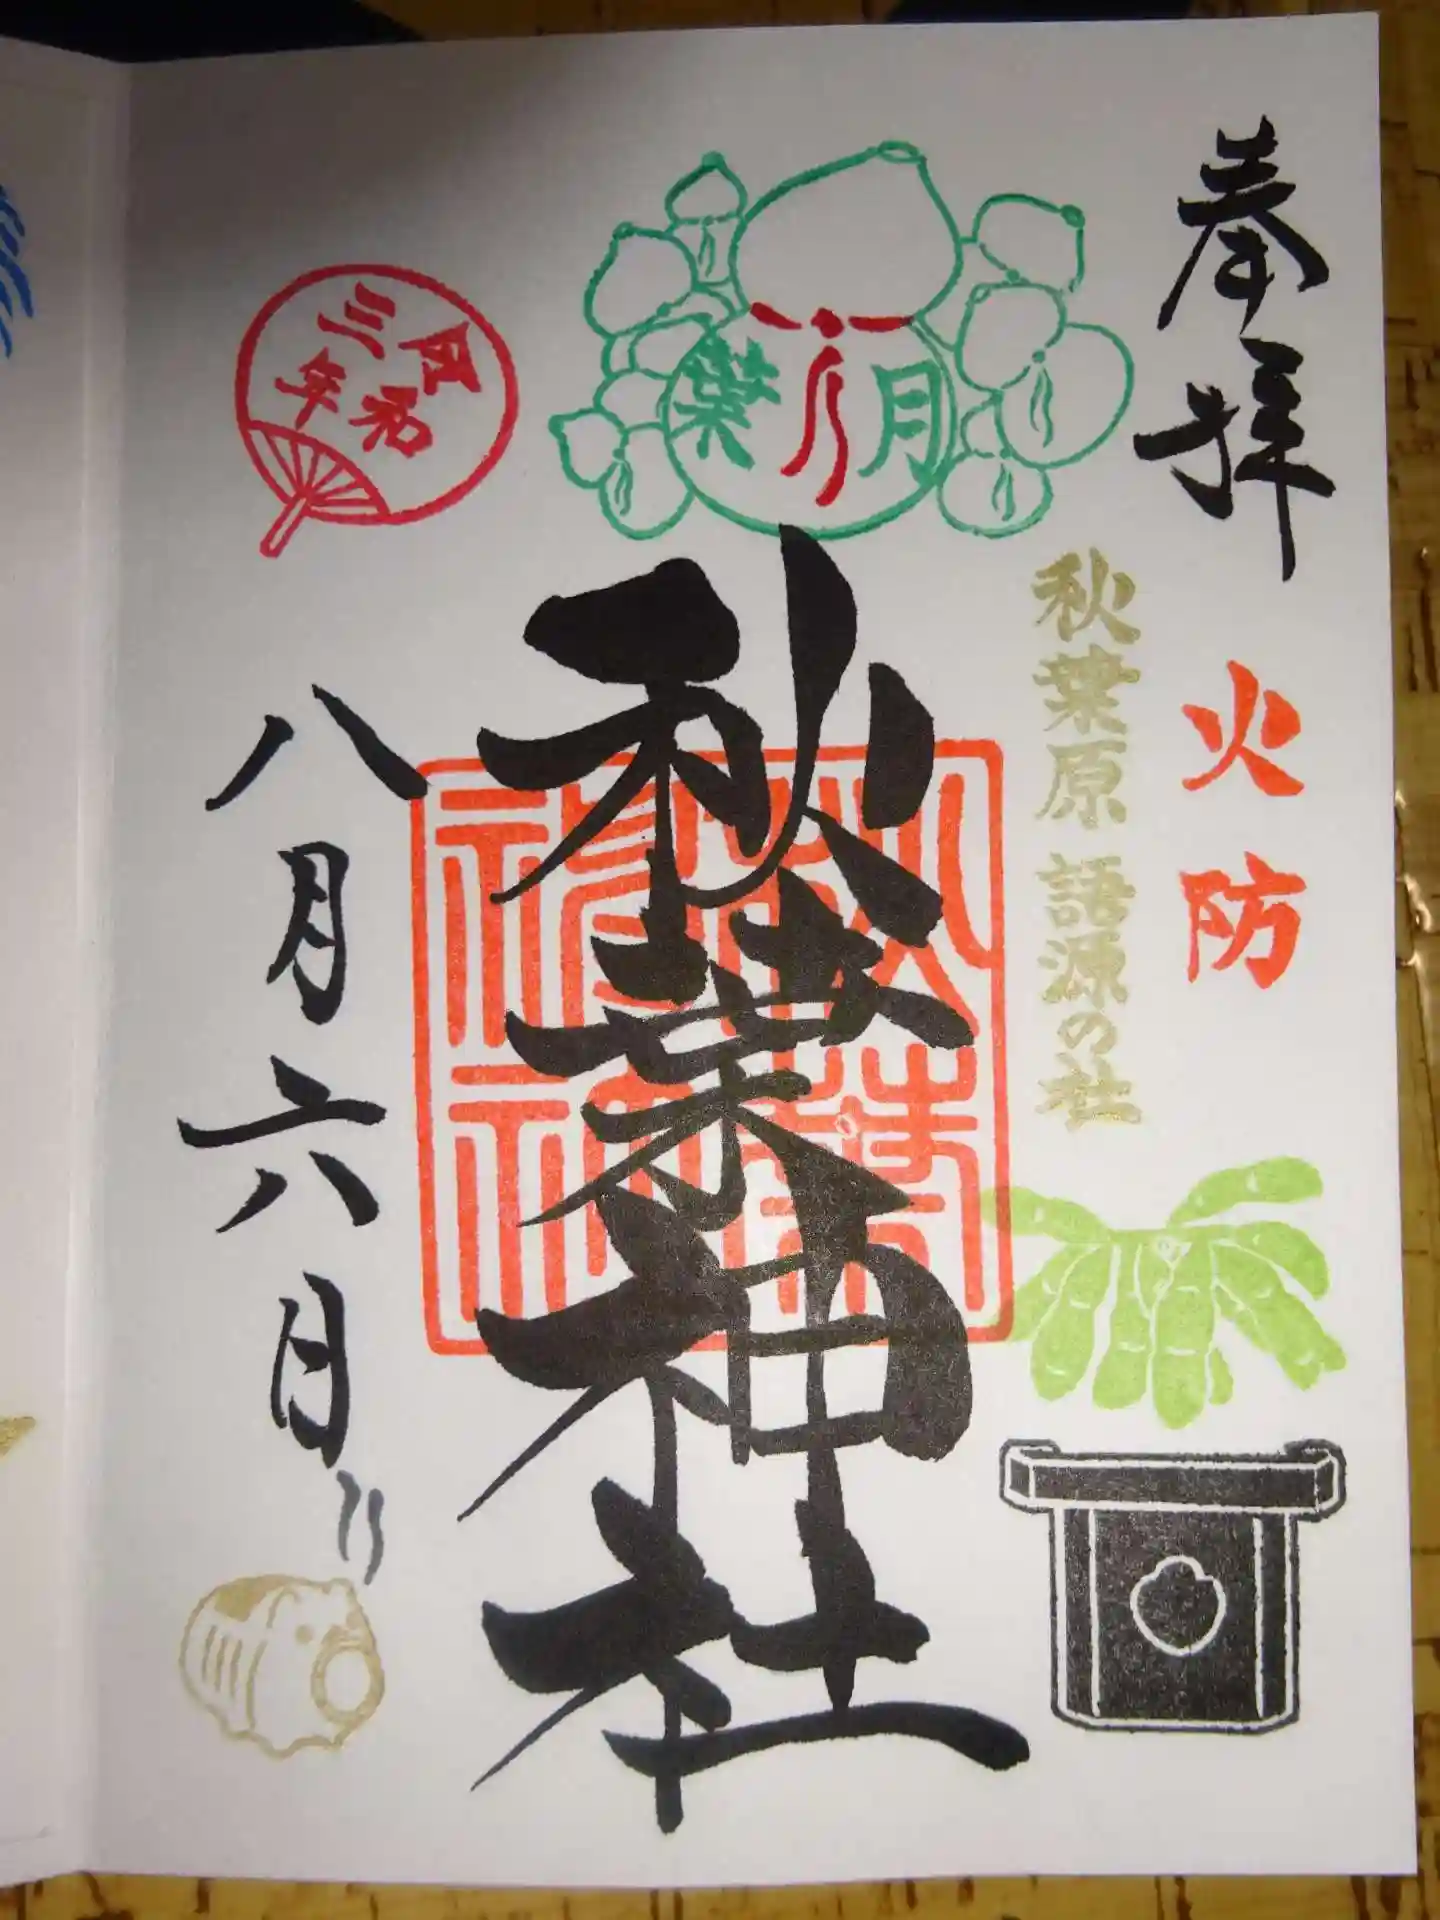 奉拝
火防
秋葉原 語源の社
葉月
秋葉神社
秋葉神社
令和三年
八月六日